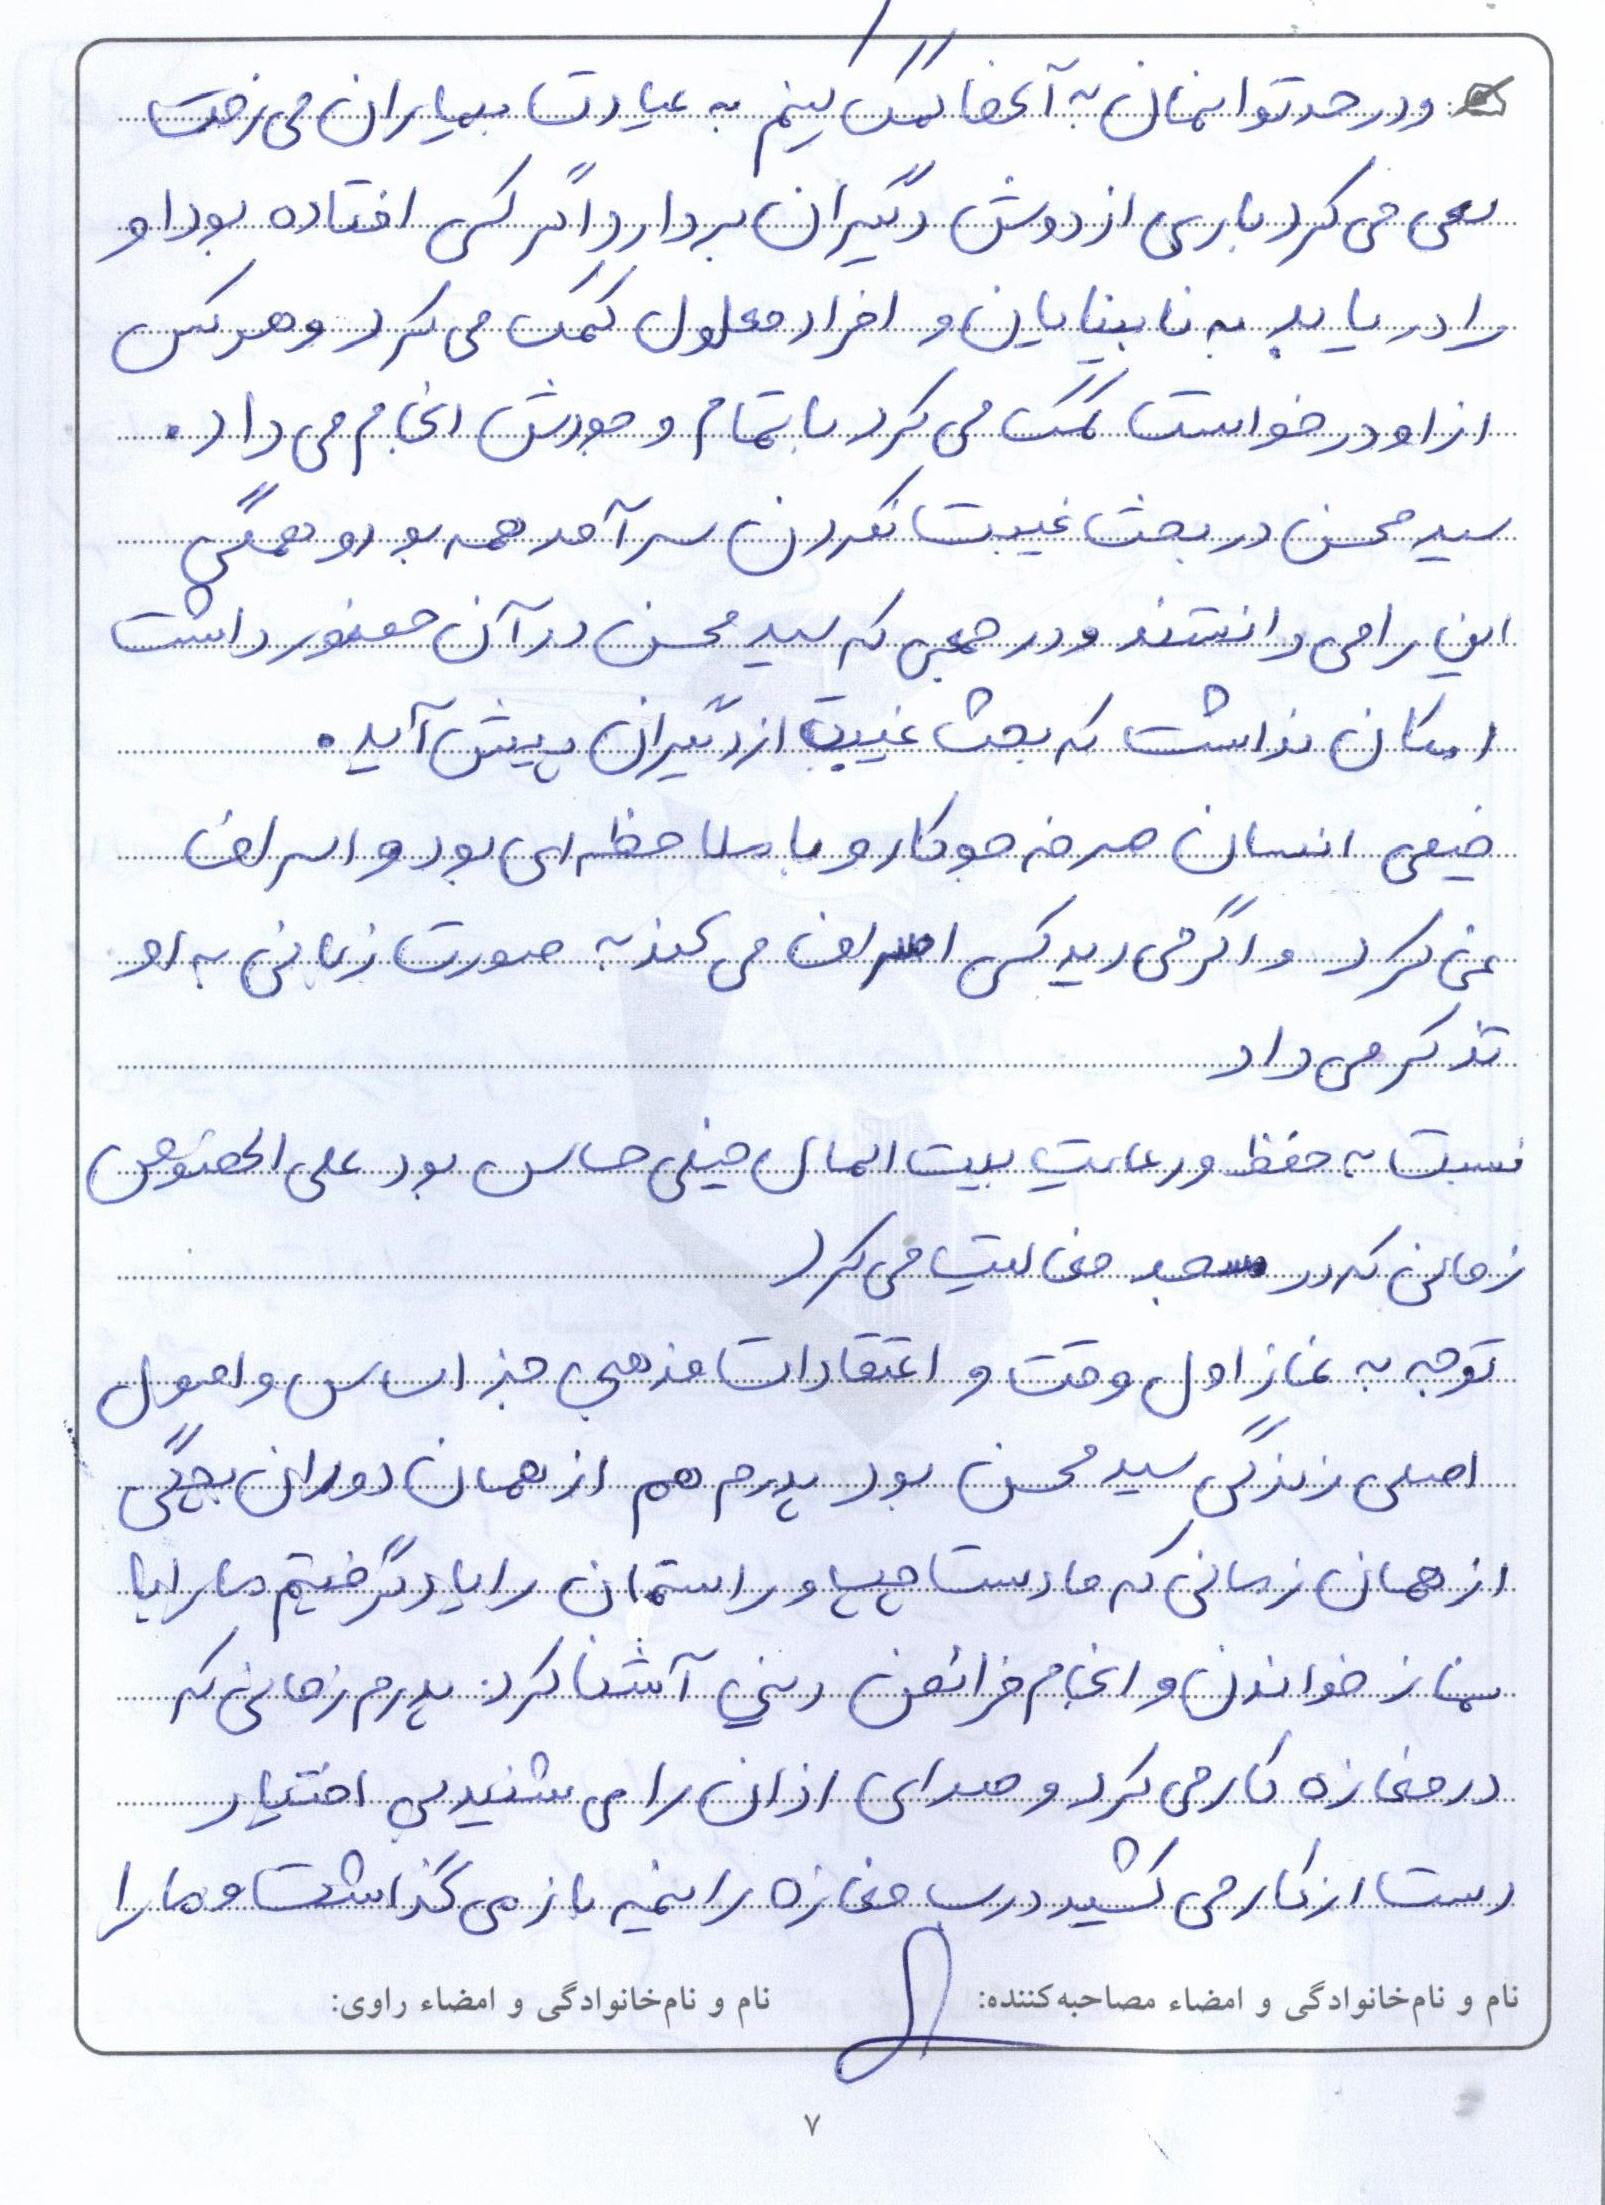 و در حد توانمان به آنها کمک کنیم به عیادت بیماران می رفت
سعی می کرد باری از دوش دیگران بردارد اگر کسی افتاده بود او
را دریابد به نابینایان و افراد معلول کمک می کرد و هر کس
از او درخواست کمک می کرد با تمام وجودش انجام می داد.
سید محسن در بحث غیبت نکردن سرآمد همه بود و همگی
این را می دانستند و در جمعی که سید محسن در آن حضور داشت
امکان نداشت که بحث غیبت از دیگران پیش آید.
خیلی انسان صرفه جو کار و با ملاحظه ای بود و اسراف
نمی کرد و اگر می دید کسی اسراف می کند به صورت زبانی به او
تذکر می داد
نسبت به حفظ و رعایت بیت المال خیلی حساس بود علی الخصوص
زمانی که در مسجد فعالیت می کرد
توجه به نماز اول وقت و اعتقادات مذهبی جز اساس و اصول
اصلی زندگی سید محسن بود پدرم هم از همان دوران بچگی
از همان زمانی که ما دست چپ و راستمان را یاد گرفتیم ما را با
نماز خواندن و انجام فرائض دینی آشنا کرد. پدرم زمانی که
در مغازه کار می کرد و صدای اذان را می شنید بی اختیار
دست از کار می کشید درب مغازه را نیمه باز می گذاشت و ما را
نام و نام‌خانوادگی و امضاء مصاحبه‌کننده: نام و نام‌خانوادگی و امضاء راوی:
۷